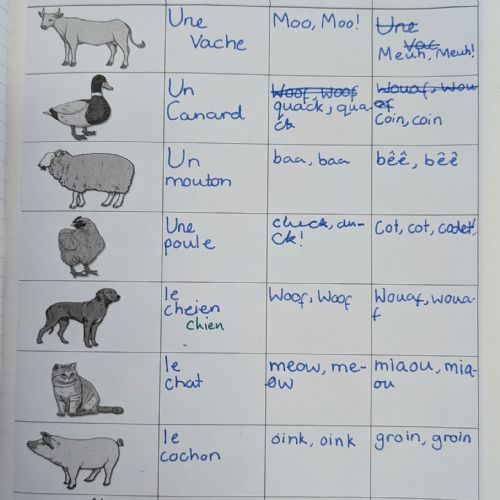 Une
Vache
Moo, Moo!
Une
Vac
Meuh, Meuh!
Un
Canard
Woof, Woof
quack, qua-
ck
Wouaf, wou
af
Coin, coin
Un
mouton
baa, baa
bêê, bêê
Une
poule
cluck, clu-
ck!
Cot, cot, codet!
le
cheien
chien
Woof, Woof
Wouaf, woua-
f
le
chat
meow, me-
ow
miaou, mia-
ou
le
cochon
oink, oink
groin, groin